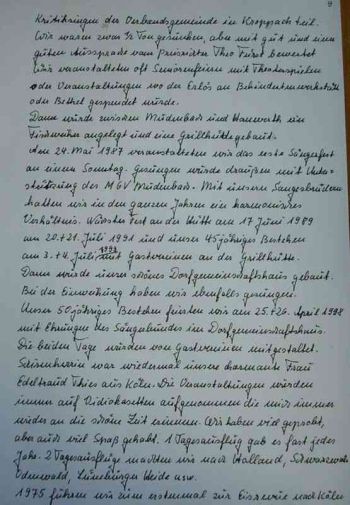 9
Kritiksingen der Verbandsgemeinde in Kroppach teil.
Wir waren zwar ½ Ton gesunken, aber mit gut und einer
guten Aussprache vom Preisrichter Theo Fürst bewertet
Wir veranstalteten oft Seniorenfeiern mit Theaterspielen
oder Veranstaltungen wo der Erlös an Behindertenwerkstatt
oder Bethel gespendet wurde.
Dann wurde zwischen Mudenbach und Hanwerth ein
Fischweiher angelegt und eine Grillhütte gebaut.
Am 24. Mai 1987 veranstalteten wir das erste Sängerfest
an einem Sonntag. Gesungen wurde draußen mit Unter-
stützung des MGV Mudenbach. Mit unseren Sangesbrüdern
hatten wir in den ganzen Jahren ein harmonisches
Verhältnis. Nächstes Fest an der Hütte am 17 Juni 1989
am 20.+21. Juli 1991 und unser 45jähriges Bestehen
am 3.+4. Juli 1993 mit Gastvereinen an der Grillhütte.
Dann wurde unser schönes Dorfgemeinschaftshaus gebaut.
Bei der Einweihung haben wir ebenfalls gesungen.
Unser 50jähriges Bestehen feierten wir am 25.+26. April 1998
mit Ehrungen des Sängerbundes im Dorfgemeinschaftshaus.
Die beiden Tage wurden von Gastvereinen mitgestaltet.
war wiedermal unsere charmante Frau
Edeltraud Thies aus Köln. Die Veranstaltungen wurden
immer auf Vidiokasetten aufgenommen die mich immer
wieder an die schöne Zeit erinnern. Wir haben viel geprobt,
aber auch viel Spaß gehabt. 1 Tagesausflug gab es fast jedes
Jahr. 2 Tagesausflüge machten wir nach Holland, Schwarzwald
Odenwald, Lüneburger Heide usw.
1975 fuhren wir zum erstenmal zur Eisrevue nach Köln